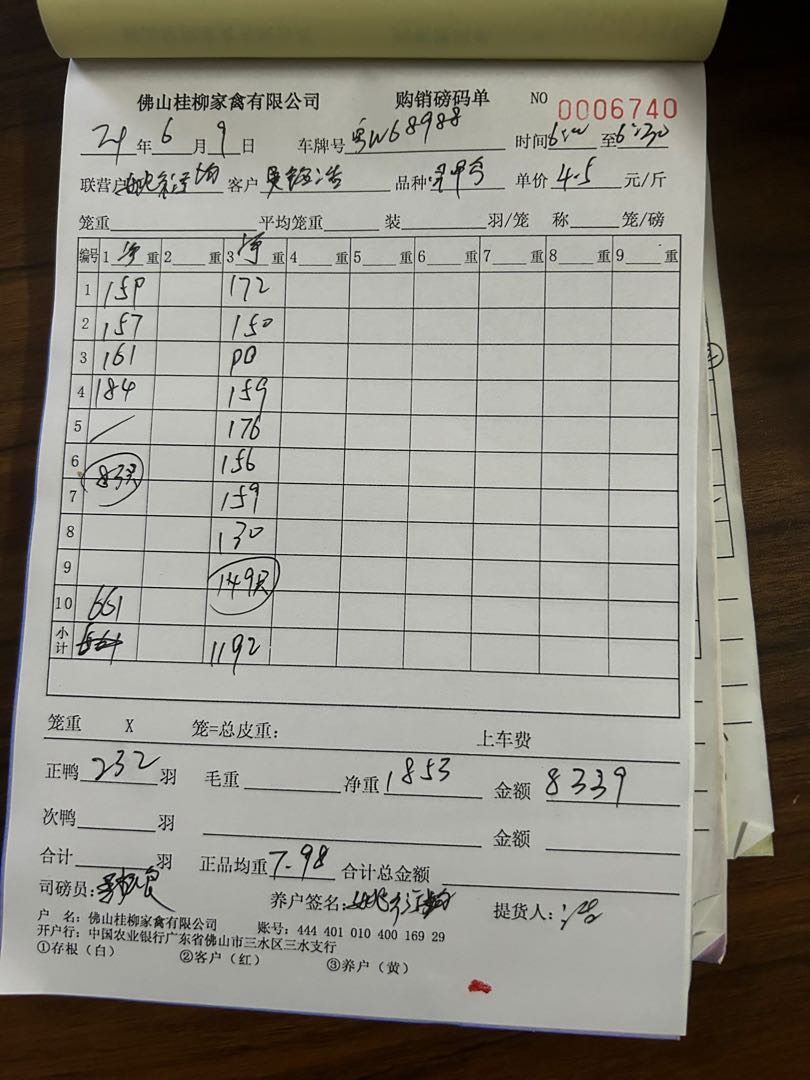 佛山桂柳家禽有限公司 购销磅码单 NO 0006740
24年6月9日 车牌号粤W68988 时间6:00至6:30
联营户 客户 品种 单价4.5元/斤
笼重 平均笼重 装 羽/笼 称 笼/磅
编号 1净重 2重 3净重 4重 5重 6重 7重 8重 9重
1 159 172
2 157 150
3 161
4 184 159
5 / 176
6 83只 156
7 159
8 130
9 149只
10 661
小计 1192
笼重 X 笼=总皮重: 上车费
正鸭232羽 毛重 净重1853 金额8339
次鸭 羽 金额
合计 羽 正品均重7.98 合计总金额
司磅员: 养户签名: 提货人:
户 名: 佛山桂柳家禽有限公司 账号: 444 401 010 400 169 29
开户行: 中国农业银行广东省佛山市三水区三水支行
①存根(白) ②客户(红) ③养户(黄)